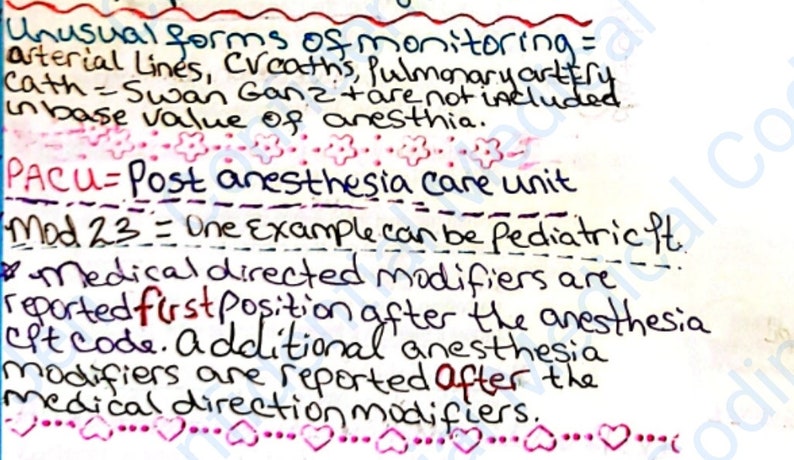 Unusual forms of monitoring =
arterial Lines, CVcaths, Pulmonary artery
cath = Swan Ganz + are not included
in base value of anesthia.
PACU = Post anesthesia care unit
Mod 23 = One Example can be Pediatric Pt.
* Medical directed modifiers are
reported first position after the anesthesia
cpt code. additional anesthesia
modifiers are reported after the
medical direction modifiers.